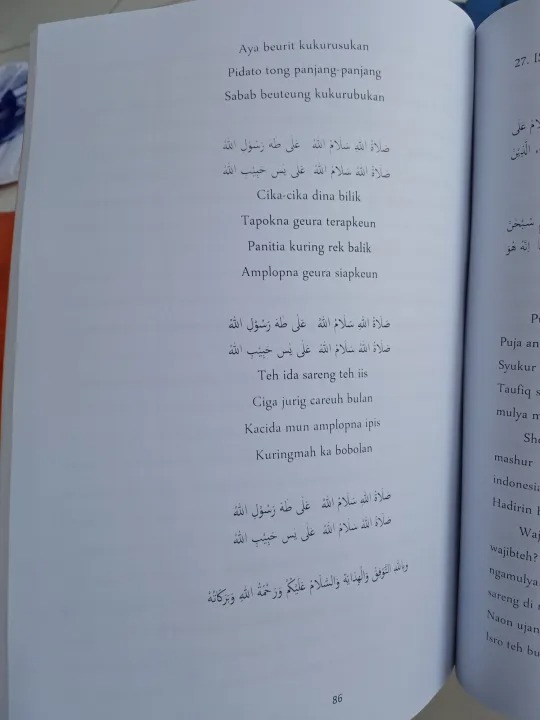 Aya beurit kukurusukan
Pidato tong panjang-panjang
Sabab beuteung kukurubukan
صَلَاةُ اللهِ سَلَامُ اللهُ عَلَى طَهَ رَسُوْلِ اللهُ
صَلَاةُ اللهُ سَلَامُ اللهُ عَلَى يس حَبِيْبِ اللهُ
Cika-cika dina bilik
Tapokna geura terapkeun
Panitia kuring rek balik
Amplopna geura siapkeun
صَلَاةُ اللهِ سَلَامُ اللهُ عَلَى طَهَ رَسُوْلِ اللهُ
صَلَاةُ اللهُ سَلَامُ اللهُ عَلَى يس حَبِيْبِ اللهُ
Teh ida sareng teh iis
Ciga jurig careuh bulan
Kacida mun amplopna ipis
Kuringmah ka bobolan
صَلَاةُ اللهِ سَلَامُ اللهُ عَلَى طَهَ رَسُوْلِ اللهُ
صَلَاةُ اللهُ سَلَامُ اللهُ عَلَى يس حَبِيْبِ اللهُ
وَبِاللهِ التَّوْفِقْ وَالْهِدَايَة وَالسَّلَامُ عَلَيْكُمْ وَرَحْمَةُ اللهِ وَبَرَكَاتُهُ
86
27.
عَلَى
الَّذِيْنَ
سُبْحٰنَ
اِنَّهٗ هُوَ
Puja an
Syukur
Taufiq s
mulya m
mashur
indonesia
Hadirin
Waj
wajibteh?
ngamulya
sareng di
Naon ujan
Isro teh bu